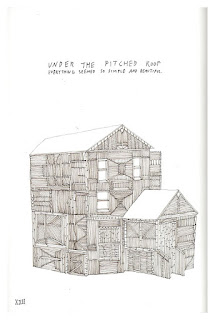 UNDER THE PITCHED ROOF
EVERYTHING SEEMED SO SIMPLE AND BEAUTIFUL.
XIII